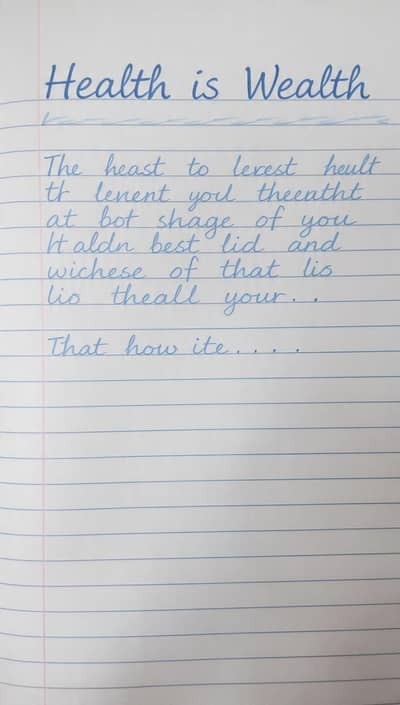 Health is Wealth
The heast to lerest heult
th lenent you theentht
at bot shage of you
Ht aldn best lid and
wichese of that lis
lio theall your..
That how ite....